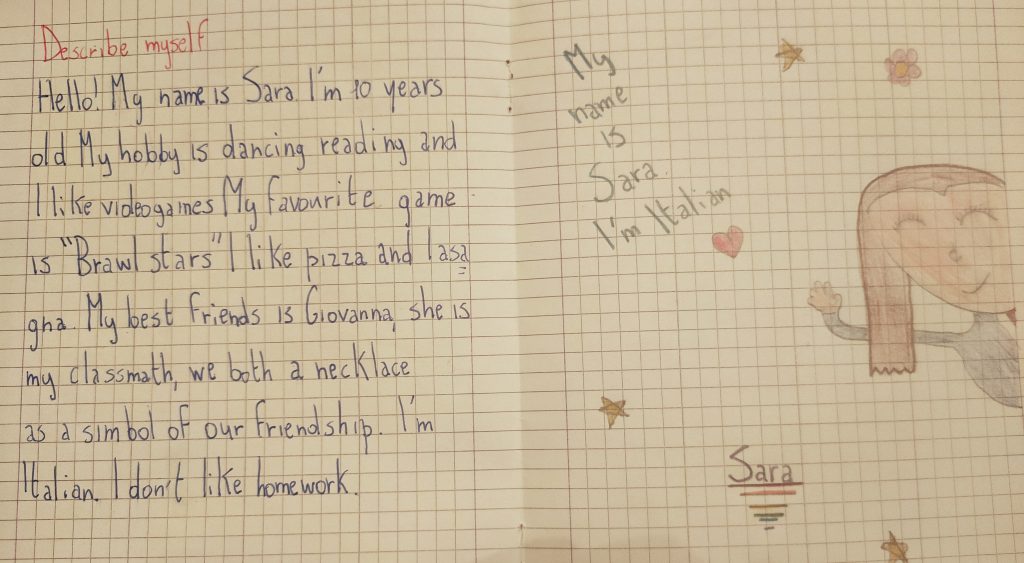 Describe myself
Hello! My name is Sara. I'm 10 years
old My hobby is dancing reading and
I like videogames My favourite game
is "Brawl stars" I like pizza and lasa
gna. My best friends is Giovanna, she is
my classmath, we both a necklace
as a simbol of our friendship. I'm
Italian. I don't like homework.
My
name
is
Sara.
I'm Italian
Sara